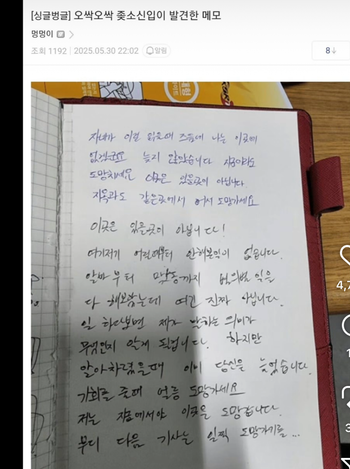 [싱글벙글] 오싹오싹 좆소신입이 발견한 메모
멍멍이
조회 1192 | 2025.05.30 22:02 알림
8
자네가 이걸 읽을때 쯤에 나는 이곳에
없겠군요 늦지 않았습니다 지금이라도
도망치세요 이곳은 있을곳이 아닙니다
지옥과도 같은곳에서 어서 도망가세요
이곳은 있을곳이 아닙니다!
여기저기 어릴때부터 안해본일이 없습니다.
알바부터 막노동까지 별의별 일을
다 해봤는데 여긴 진짜 아닙니다.
일 하다보면 제가 말하는 의미가
무엇인지 알게 됩니다. 하지만
알아차렸을때 이미 당신은 늦었습니다.
기회를 줄때 얼른 도망가세요
저는 지금에서야 이곳을 도망갑니다.
부디 다음 기사는 일찍 도망가기를...
4,7
3